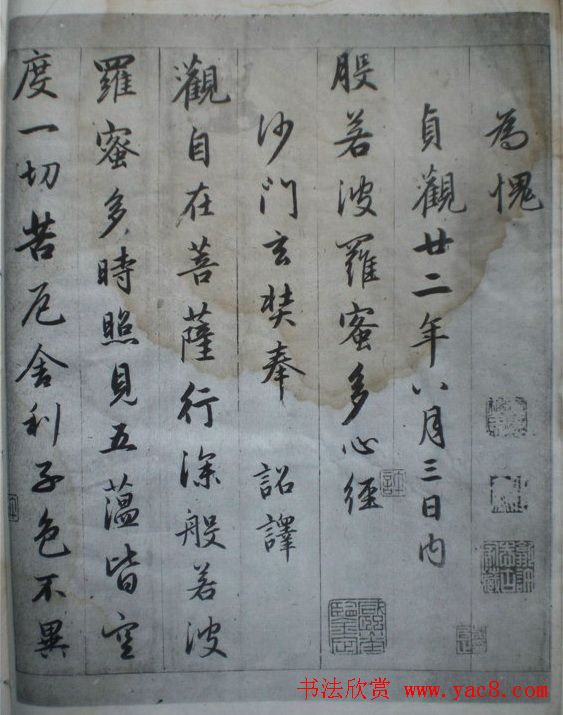 為愧
貞觀廿二年八月三日內
般若波羅蜜多心經
沙門玄奘奉 詔譯
觀自在菩薩行深般若波
羅蜜多時照見五蕴皆空
度一切苦厄舍利子色不異
书法欣赏 www.yac8.com